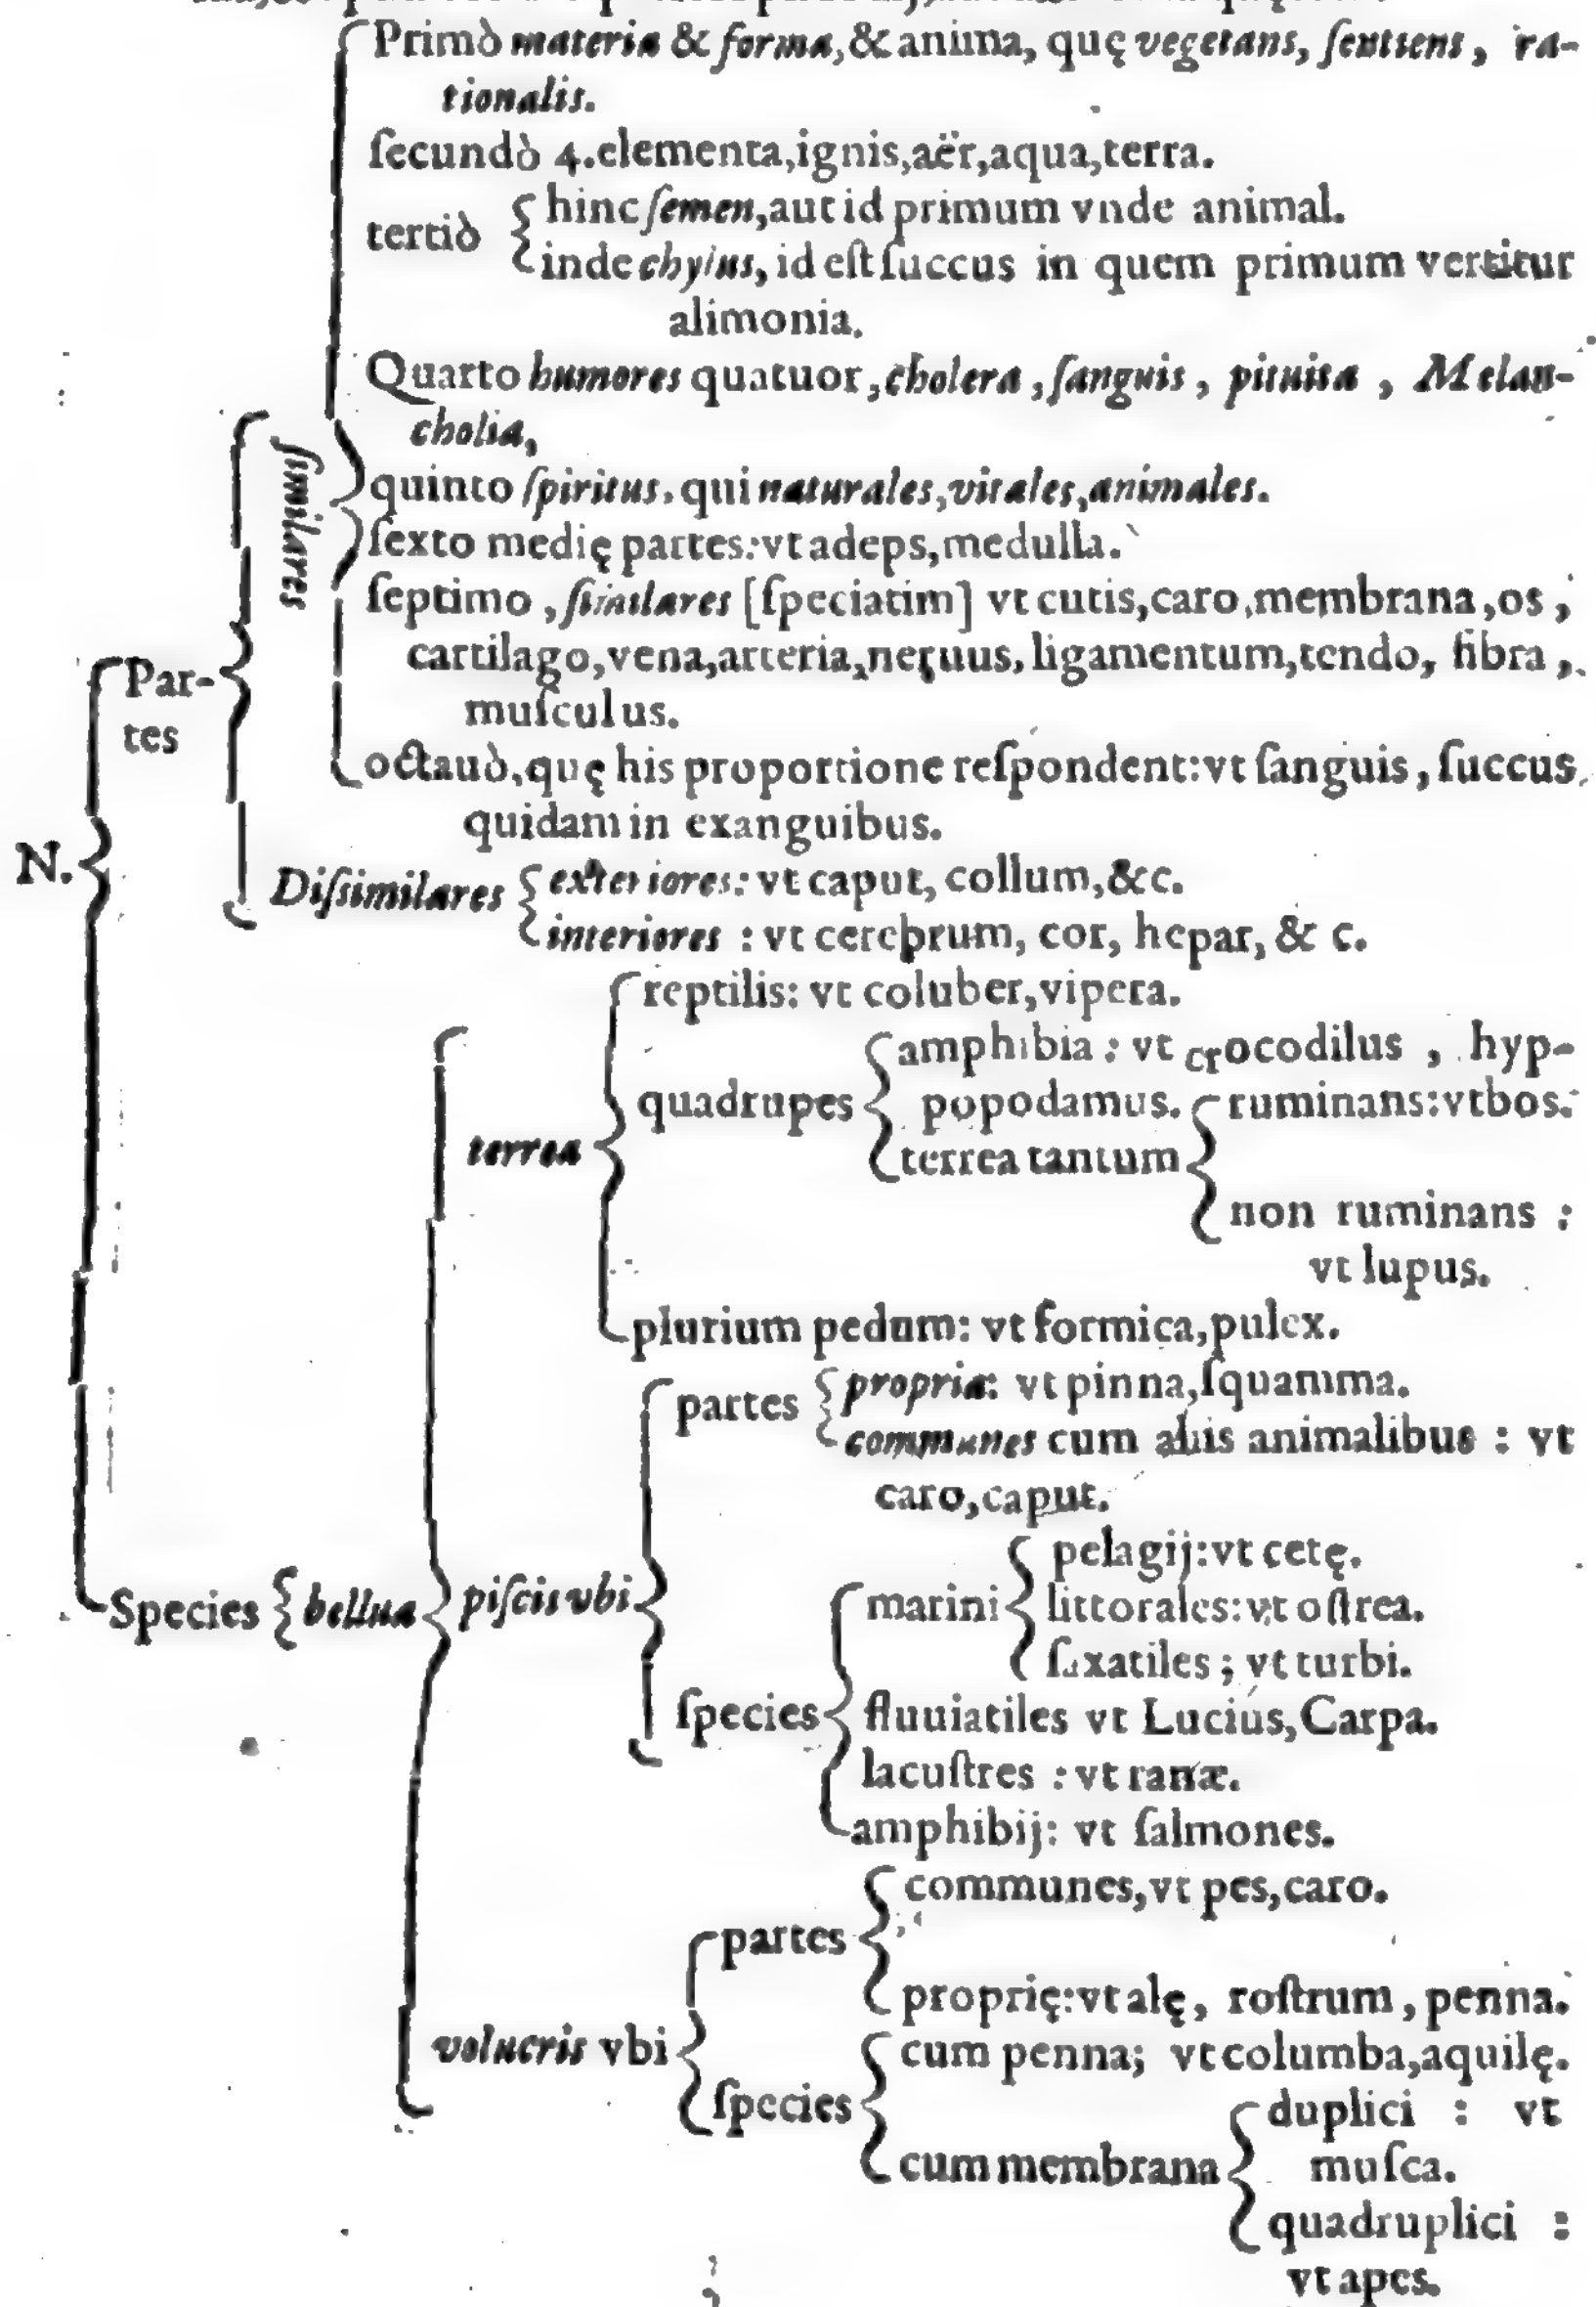 Primò materia & forma, & anima, quę vegetans, ſentiens, ra-
tionalis.
ſecundò 4. elementa, ignis, aër, aqua, terra.
tertiò
hinc ſemen, aut id primum vnde animal.
inde chylus, id eſt ſuccus in quem primum vertitur
alimonia.
Quarto humores quatuor, cholera, ſanguis, pituita, Melan-
cholia,
quinto ſpiritus. qui naturales, vitales, animales.
ſexto medię partes: vt adeps, medulla.
ſimilares
ſeptimo, ſimilares [ſpeciatim] vt cutis, caro, membrana, os,
cartilago, vena, arteria, neruus, ligamentum, tendo, fibra,
muſculus.
Par-
tes
octauò, quę his proportione reſpondent: vt ſanguis, ſuccus
quidam in exanguibus.
N.
Diſsimilares
exteriores: vt caput, collum, &c.
interiores: vt cerebrum, cor, hepar, & c.
reptilis: vt coluber, vipera.
terrea
quadrupes
amphibia: vt crocodilus, hyp-
popodamus.
ruminans: vt bos.
terrea tantum
non ruminans:
vt lupus.
plurium pedum: vt formica, pulex.
partes
propria: vt pinna, ſquamma.
communes cum aliis animalibus: vt
caro, caput.
Species
bellua
piſcis vbi
marini
pelagij: vt cetę.
littorales: vt oſtrea.
ſaxatiles; vt turbi.
ſpecies
fluuiatiles vt Lucius, Carpa.
lacuſtres: vt ranæ.
amphibij: vt ſalmones.
partes
communes, vt pes, caro.
proprię: vt alę, roſtrum, penna.
volucris vbi
ſpecies
cum penna; vt columba, aquilę.
cum membrana
duplici: vt
muſca.
quadruplici:
vt apes.